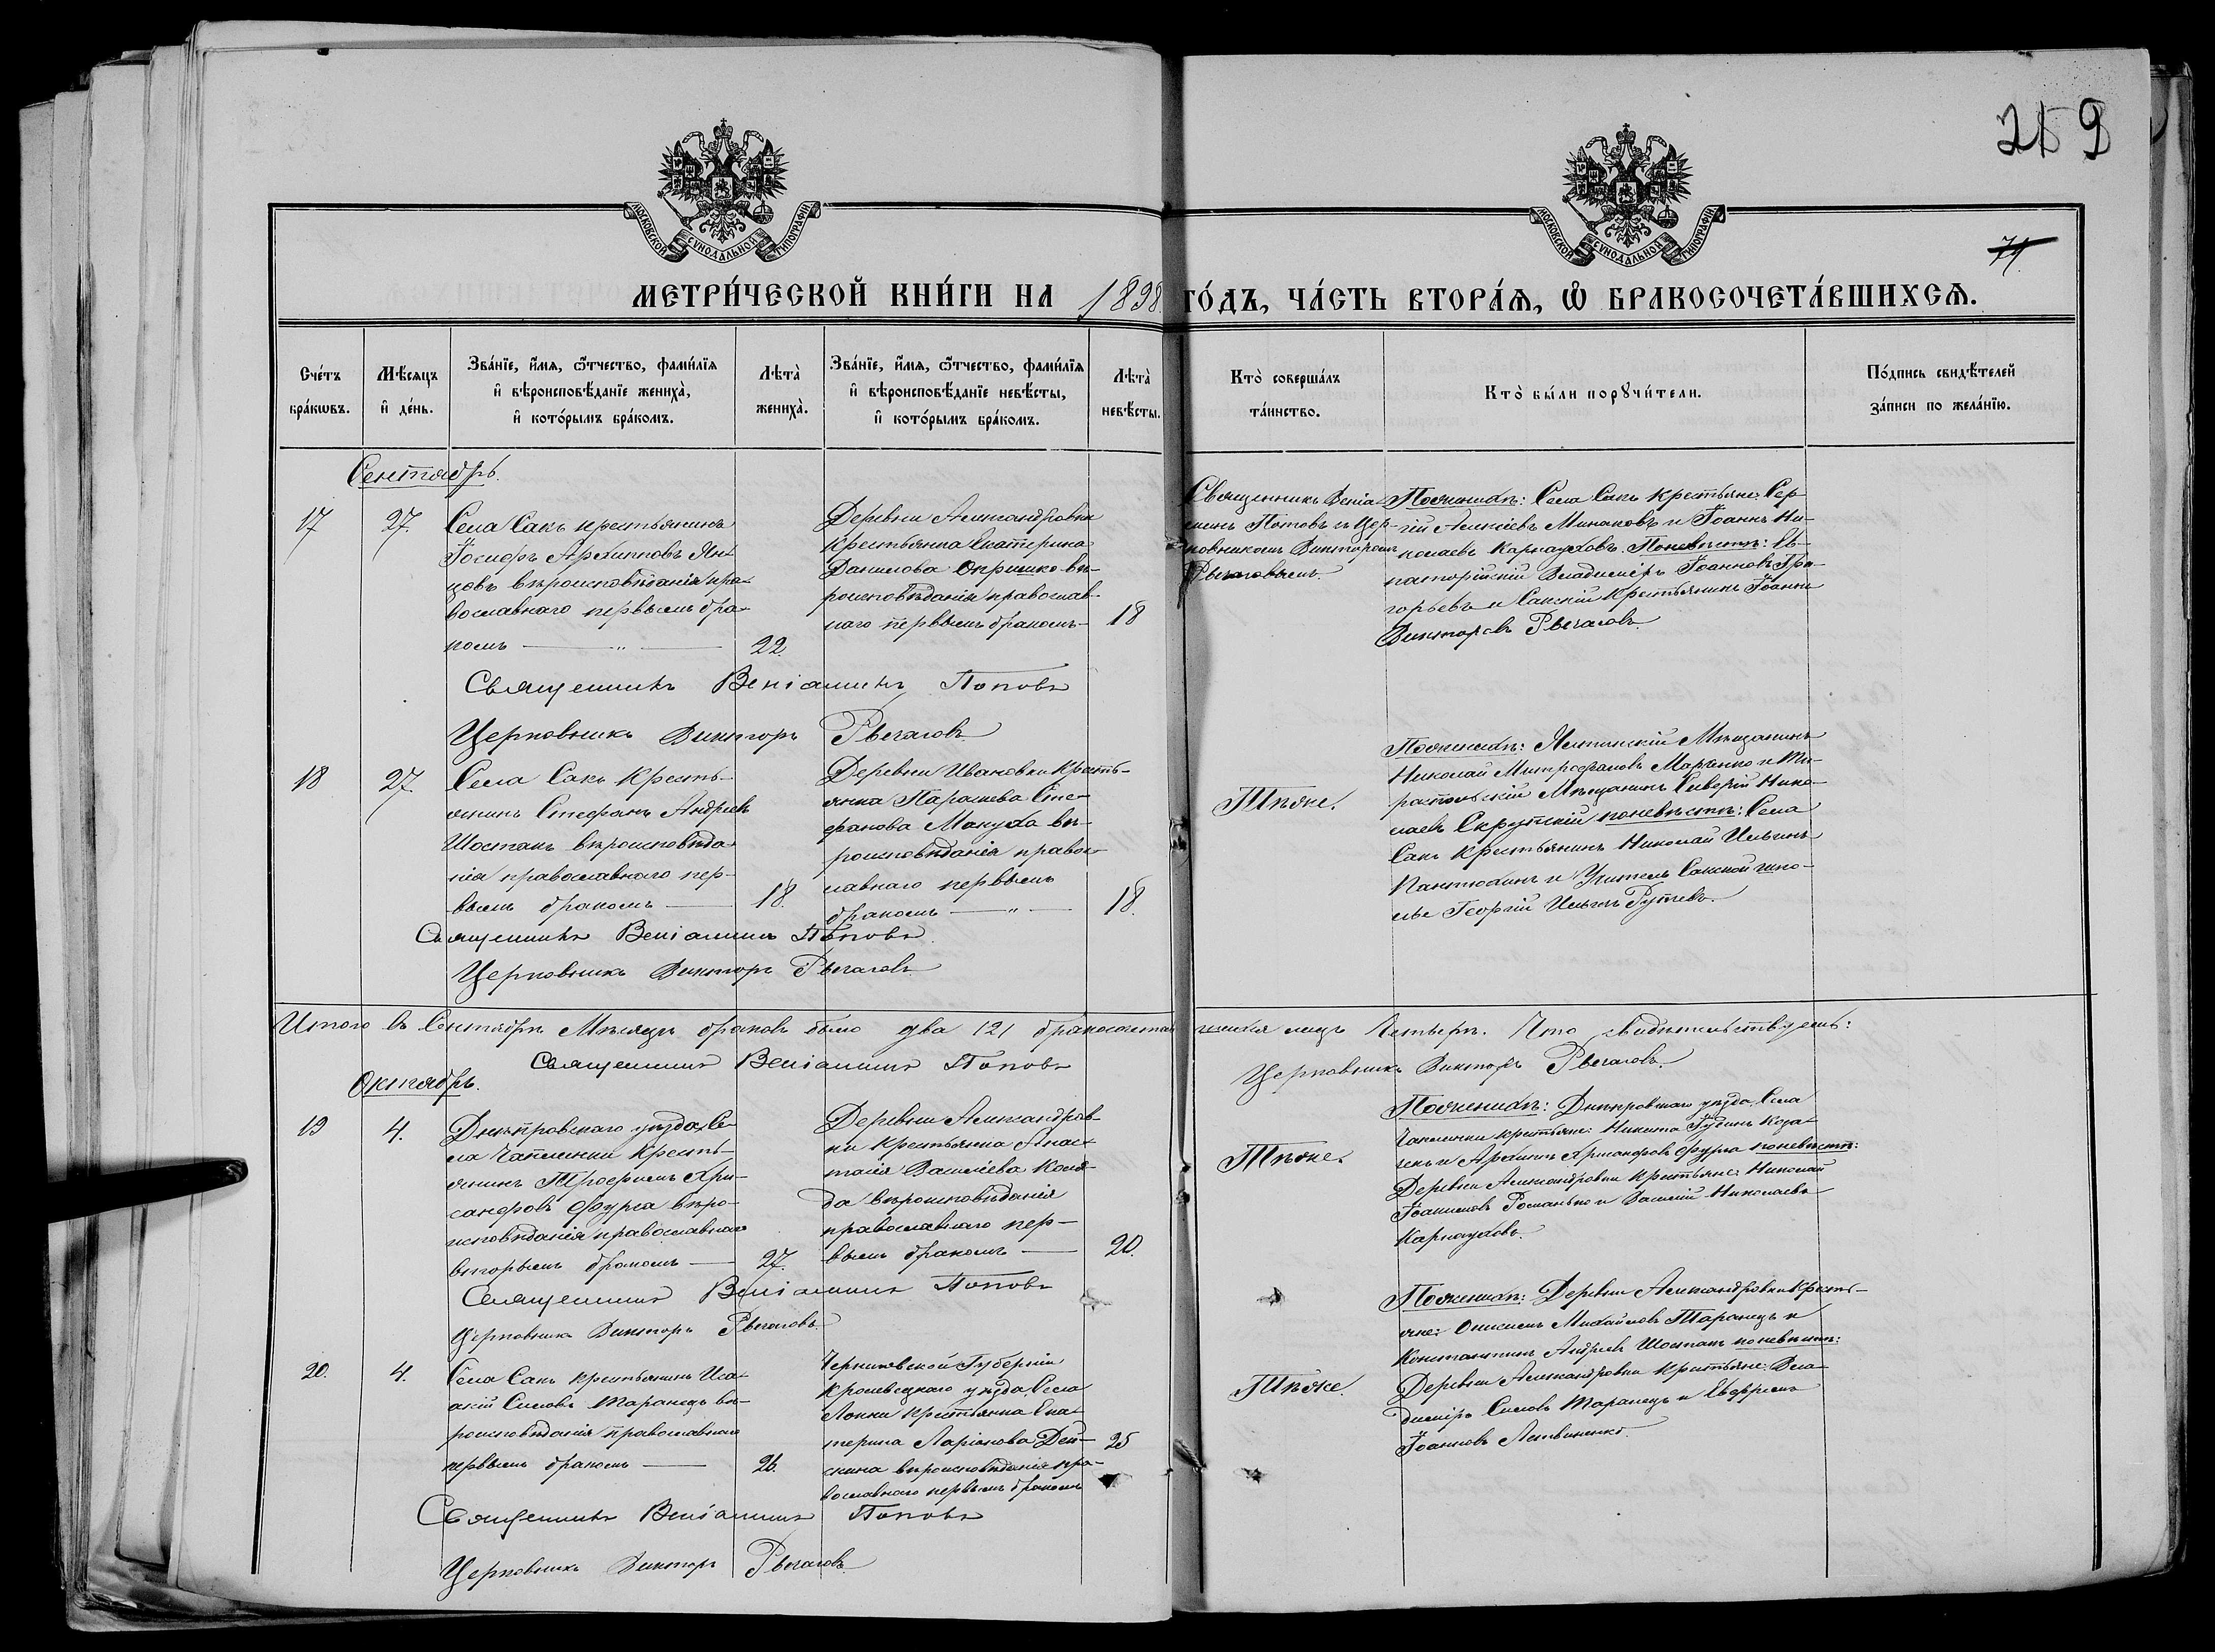 259
МОСКОВСКОЙ СУНОДАЛЬНОЙ ТИПОГРАФІИ
МОСКОВСКОЙ СУНОДАЛЬНОЙ ТИПОГРАФІИ
71
МЕТРИ́ЧЕСКОЙ КНИ́ГИ НА 1898 ГО́ДЪ, ЧА́СТЬ ВТОРА́Ѧ, Ѽ БРАКОСОЧЕТА́ВШИХСѦ.
Сче́тъ
бра́кѡвъ.
Мѣ́сѧцъ
и҆ де́нь.
Зва́нїе, и҆́мѧ, ѻ҆́тчество, фами́лїѧ
и҆ вѣроисповѣ́данїе жениха̀,
и҆ кото́рымъ бра́комъ.
Лѣта̀
жениха̀.
Зва́нїе, и҆́мѧ, ѻ҆́тчество, фами́лїѧ
и҆ вѣроисповѣ́данїе невѣ́сты,
и҆ кото́рымъ бра́комъ.
Лѣта̀
невѣ́сты.
Кто̀ соверша́лъ
та́инство.
Кто̀ бы́ли порꙋчи́тели.
По́дпись свидѣ́телей
за́писи по жела́нїю.
Сентябрь.
17
27.
Села Сакъ крестьянинъ
Іосифъ Архипповъ Ян-
цовъ вѣроисповѣданія пра-
вославнаго первымъ бра-
комъ — " —
22.
Деревни Александровки
крестьянка Екатерина
Данилова Окришко вѣ-
роисповѣданія православ-
наго первымъ бракомъ
18
Священникъ Веніа-
минъ Поповъ съ цер-
ковникомъ Викторомъ
Рычаговымъ.
По женихѣ: Села Сакъ крестьяне: Сер-
гій Алексіевъ Минаковъ и Іоаннъ Ни-
колаевъ Карнауховъ. По невѣстѣ: Ев-
паторійскій Владиміръ Іоанновъ Гри-
горьевъ и Сакскій крестьянинъ Іоаннъ
Викторовъ Рычаговъ.
Священникъ Веніаминъ Поповъ
Церковникъ Викторъ Рычаговъ
18
27
Села Сакъ кресть-
янинъ Стефанъ Андреевъ
Шостакъ вѣроисповѣда-
нія православнаго пер-
вымъ бракомъ —
18
Деревни Ивановки кресть-
янка Параскева Сте-
фанова Макуха вѣ-
роисповѣданія право-
славнаго первымъ
бракомъ — " —
18.
Тѣже.
По женихѣ: Ялтинскій Мѣщанинъ
Николай Митрофановъ Марченко и Ти-
распольскій Мѣщанинъ Северій Нико-
лаевъ по невѣстѣ: Села
Сакъ крестьянинъ Николай Ильинъ
Пантюхинъ и Учитель Сакской шко-
лы Георгій Ильинъ
Священникъ Веніаминъ Поповъ
Церковникъ Викторъ Рычаговъ
Итого въ Сентябрѣ Мѣсяцѣ браковъ было два /2/ бракосочетавшихся лицъ Четыре. Что свидѣтельствуемъ:
Священникъ Веніаминъ Поповъ
Церковникъ Викторъ Рычаговъ.
Октябрь.
19
4.
Днѣпровскаго уѣзда, Се-
ла Чаплинки кресть-
янинъ Трофимъ Хри-
санфовъ Фурса вѣро-
исповѣданія православнаго
вторымъ бракомъ —
27.
Деревни Александров-
ки крестьянка Анас-
тасія Василіева Коля-
да вѣроисповѣданія
православнаго пер-
вымъ бракомъ —
20.
Тѣже.
По женихѣ: Днѣпровскаго уѣзда, Села
Чаплинки крестьяне: Никита Коза-
ченъ и Архипъ Хрисанфовъ Фурса по невѣстѣ:
Деревни Александровки крестьяне: Николай
Іоанновъ Романько и Василій Николаевъ
Карнауховъ.
Священникъ Веніаминъ Поповъ
Церковникъ Викторъ Рычаговъ
20.
4.
Села Сакъ крестьянинъ Иса-
акій Силовъ Таранецъ вѣ-
роисповѣданія православнаго
первымъ бракомъ —
26.
Черниговской Губерніи
Кролевецкаго уѣзда, Села
крестьянка Ека-
терина Ларіонова Дей-
кина вѣроисповѣданія пра-
вославнаго первымъ бракомъ
25
Тѣже.
По женихѣ: Деревни Александровки кресть-
яне: Онисимъ Михайловъ Таранецъ и
Константинъ Андреевъ Шостакъ по невѣстѣ:
Деревни Александровки крестьяне: Вла-
диміръ Силовъ Таранецъ и Евфремъ
Іоанновъ Литвиненко.
Священникъ Веніаминъ Поповъ
Церковникъ Викторъ Рычаговъ